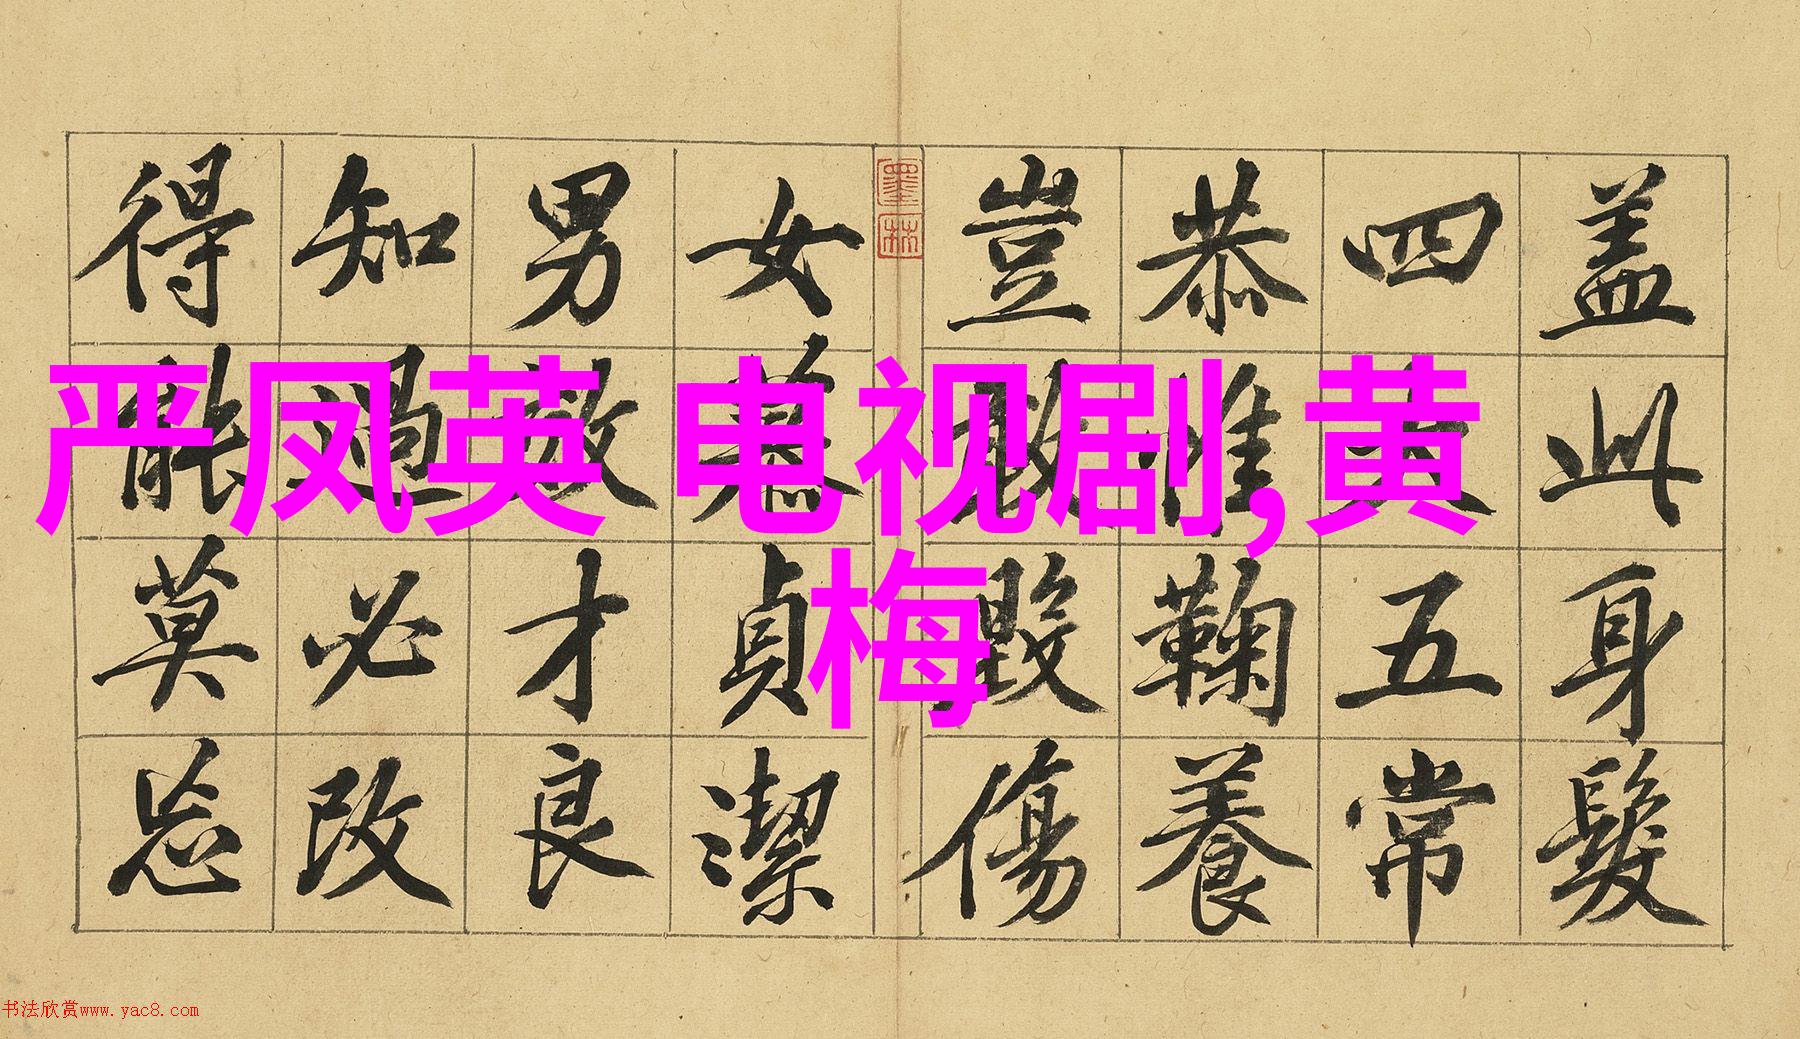 严凤英 电视剧,黄
梅
盖此身髮
四大五常
恭惟鞠養
豈敢毀傷
墨林
女慕貞潔
男效才良
知過必改
得能莫忘
书法欣赏www.yac8.com